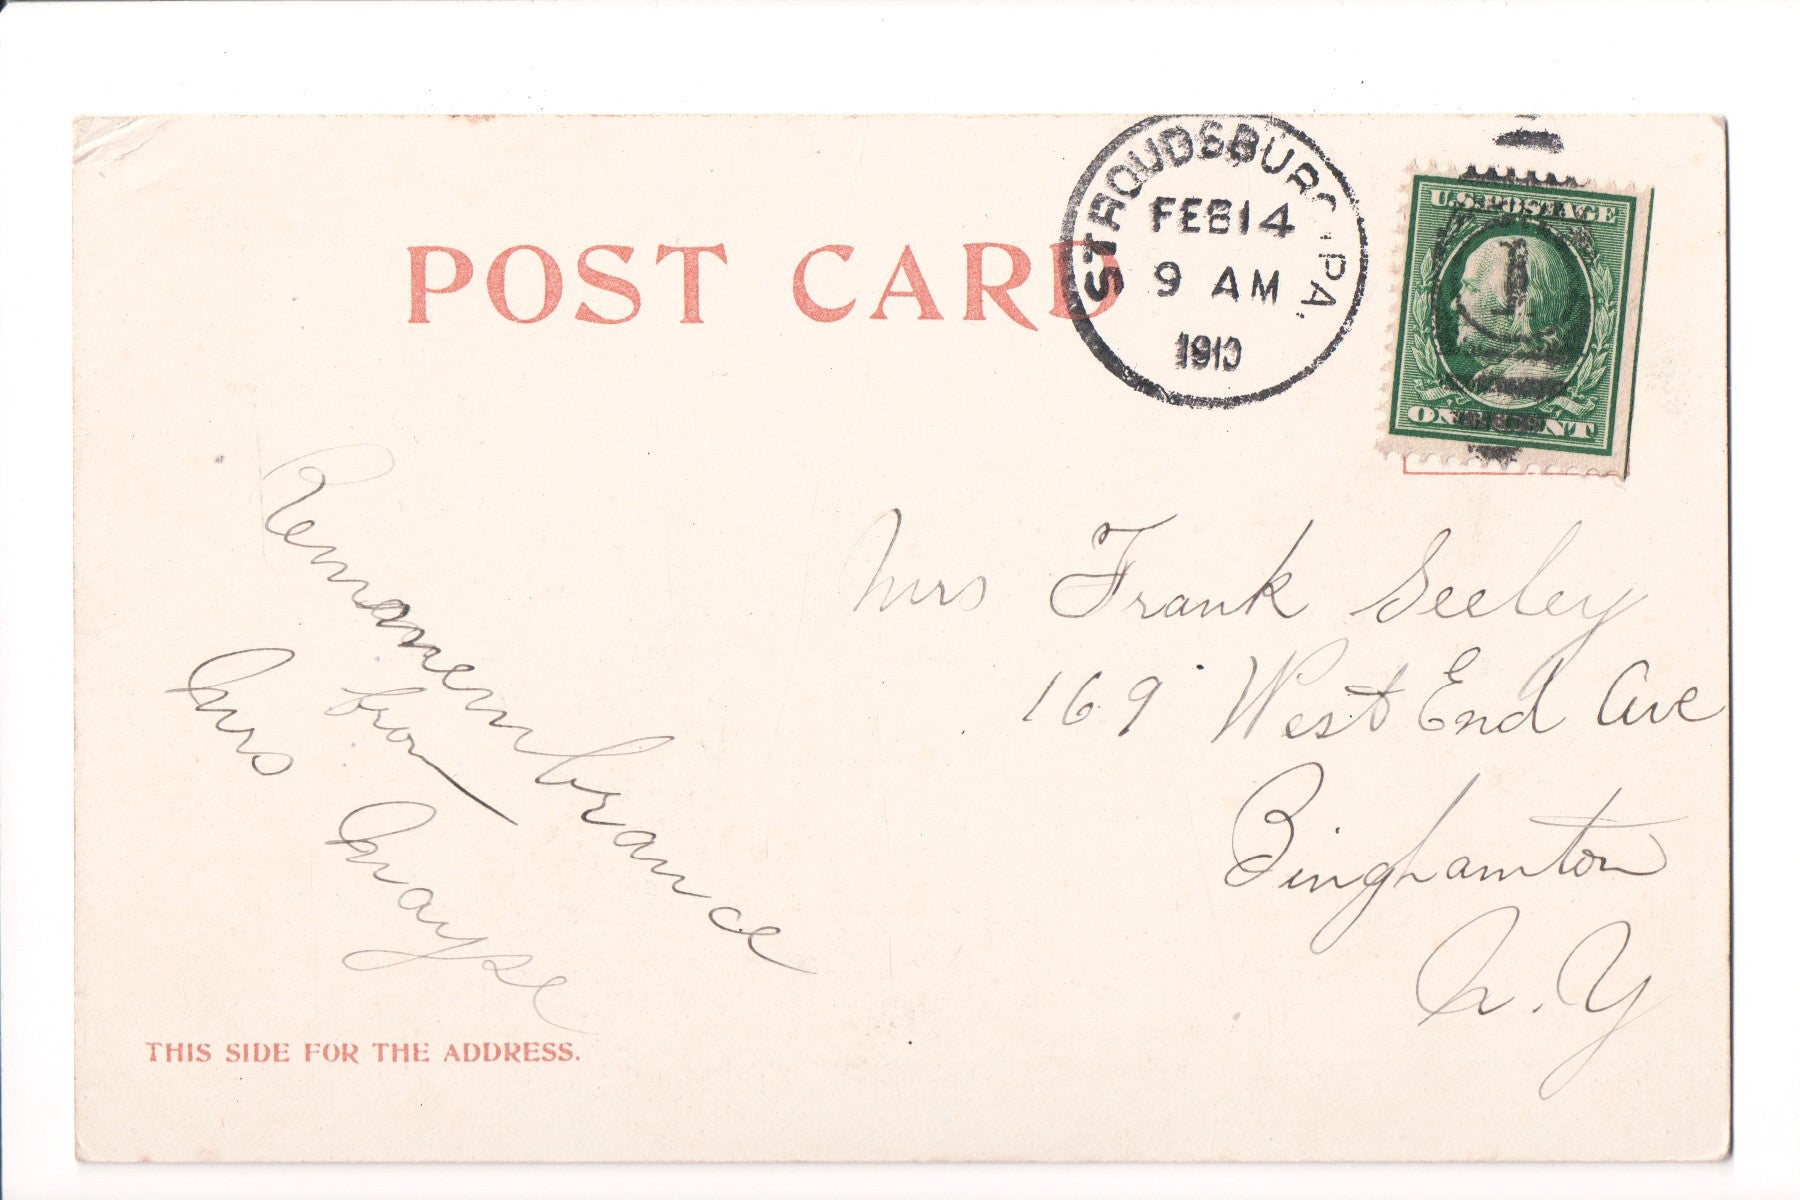 POST CARD
STROUDSBURG, PA.
FEB 14
9 AM
1910
U.S. POSTAGE
1
ONE CENT
Mrs Frank Seeley
169 West End Ave
Binghamton
N.Y
Rememembrance
from
Mrs Mayse
THIS SIDE FOR THE ADDRESS.